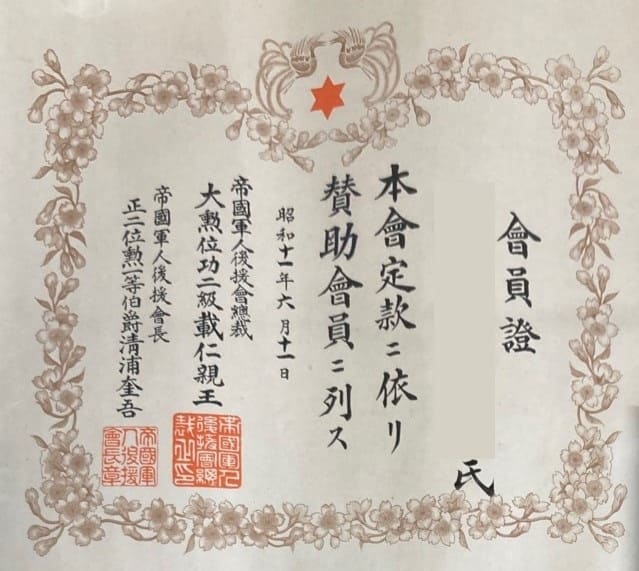 會員證
氏
本會定款ニ依リ
賛助會員ニ列ス
昭和十一年六月十一日
帝國軍人後援會總裁
大勲位功二級載仁親王
帝國軍人後援會長
正二位勲一等伯爵清浦奎吾
帝國軍人
後援會總
裁之印
帝國軍
人後援
會長章